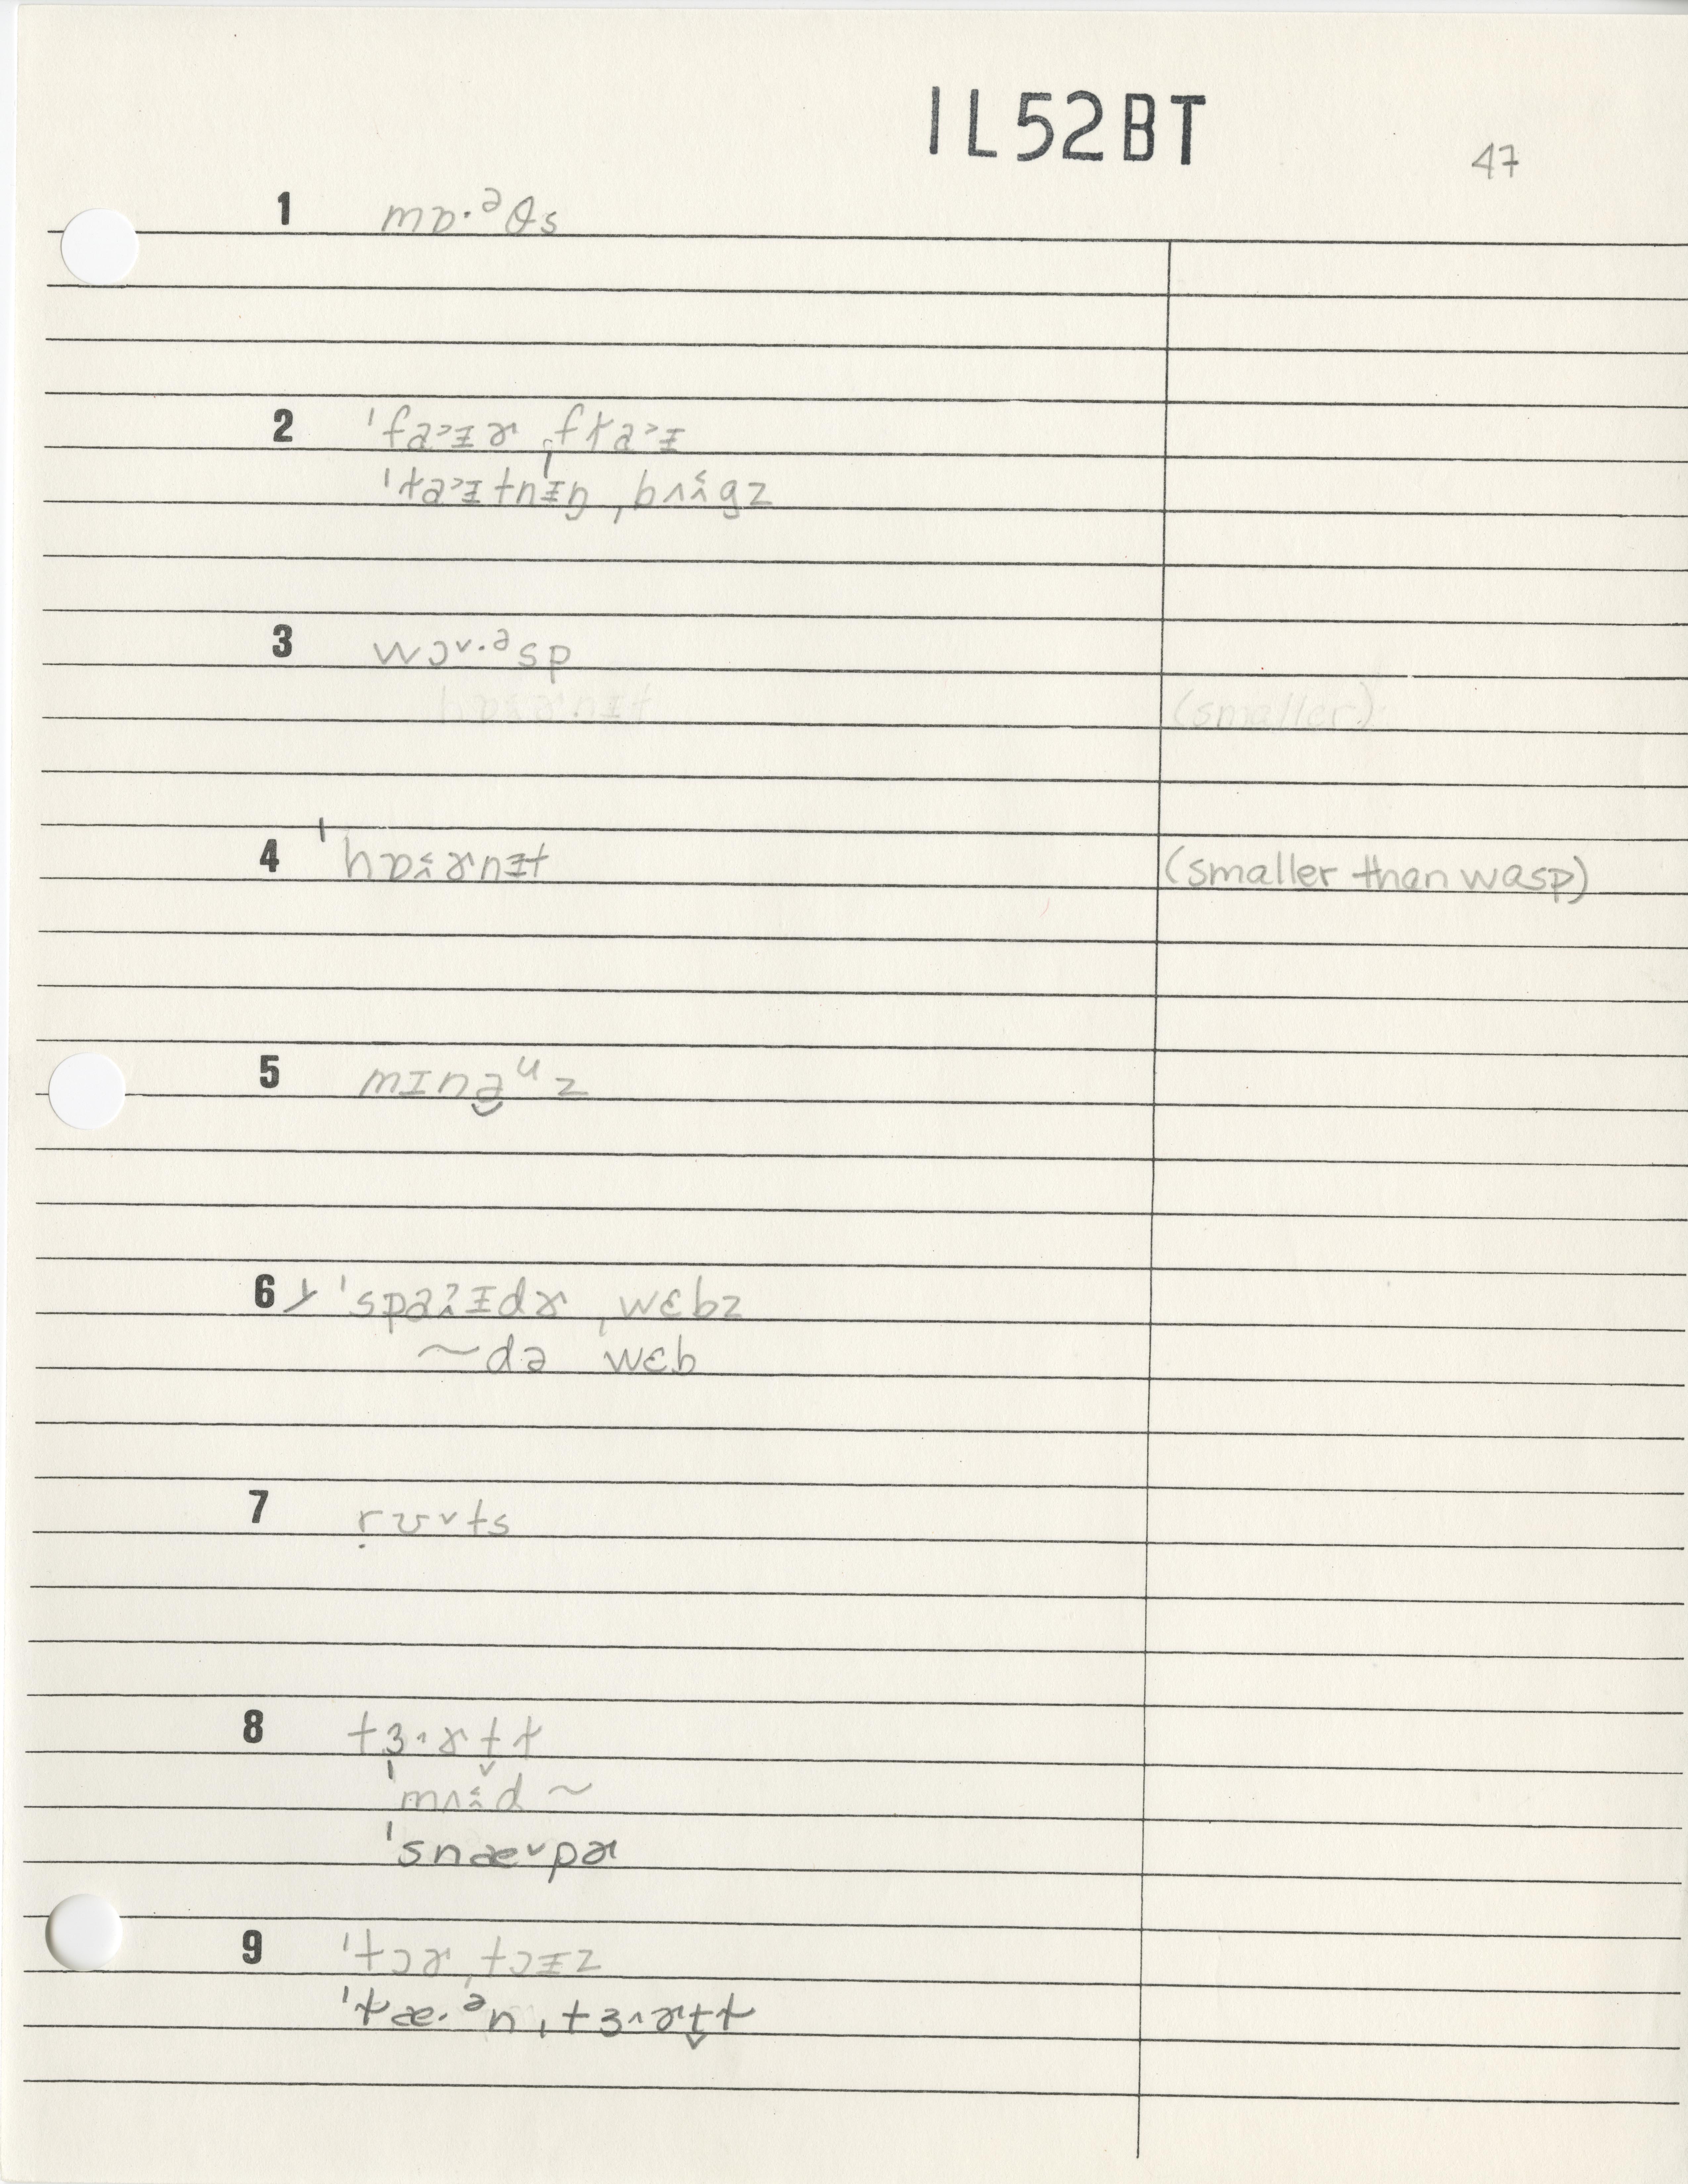 1L52BT
47
1 mɒ·ᵊθs
2 ˈfa˃ɪɚ ˌflɫa˃ɪ
ˈɫa˃ɪtnɪŋ ˌbʌgz
3 wɔ˅·ᵊsp
(smaller)
4 ˈhɒɚnɪt (smaller than wasp)
5 mɪnə̮ᵘz
6 ˈspaɪdɚ ˌwɛbz
~də wɛb
7 ṛʊ˅ts
8 tɜ˄ɚt̬ɫ
ˈmʌd ~
ˈsnæ˅pɚ
9 ˈtɔɚˌtɔɪz
ˈɫæ·ᵊnˌtɜ˄ɚt̬ɫ